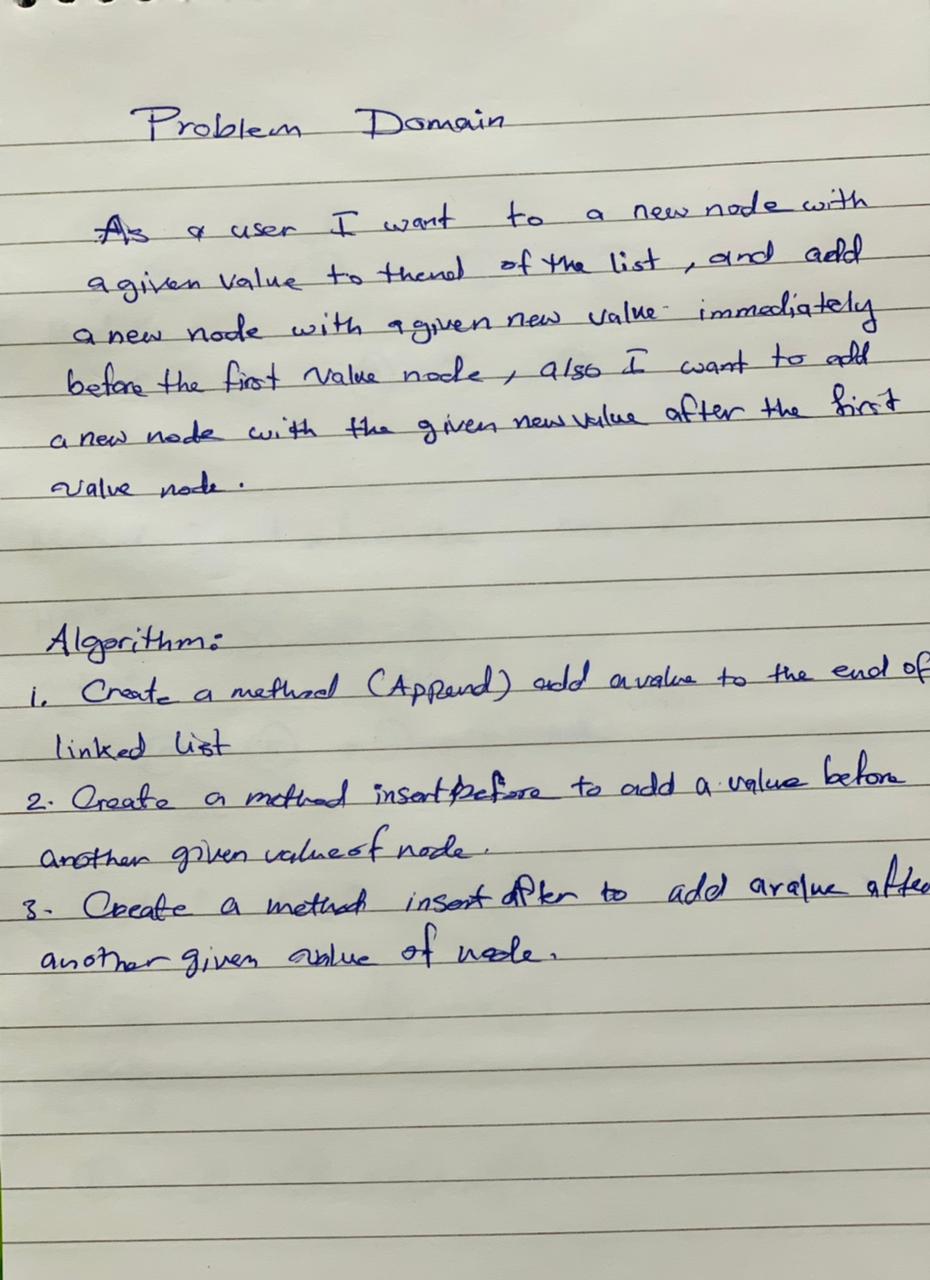 Problem Domain
As a user I want to a new node with
a given value to thend of the list, and add
a new node with a given new value immediately
before the first value node, also I want to add
a new node with the given new value after the first
value node.
Algorithm:
1. Create a method (Append) add a value to the end of
linked list
2. Create a method insert before to add a value before
another given value of node.
3. Create a method insert After to add a value after
another given value of node.